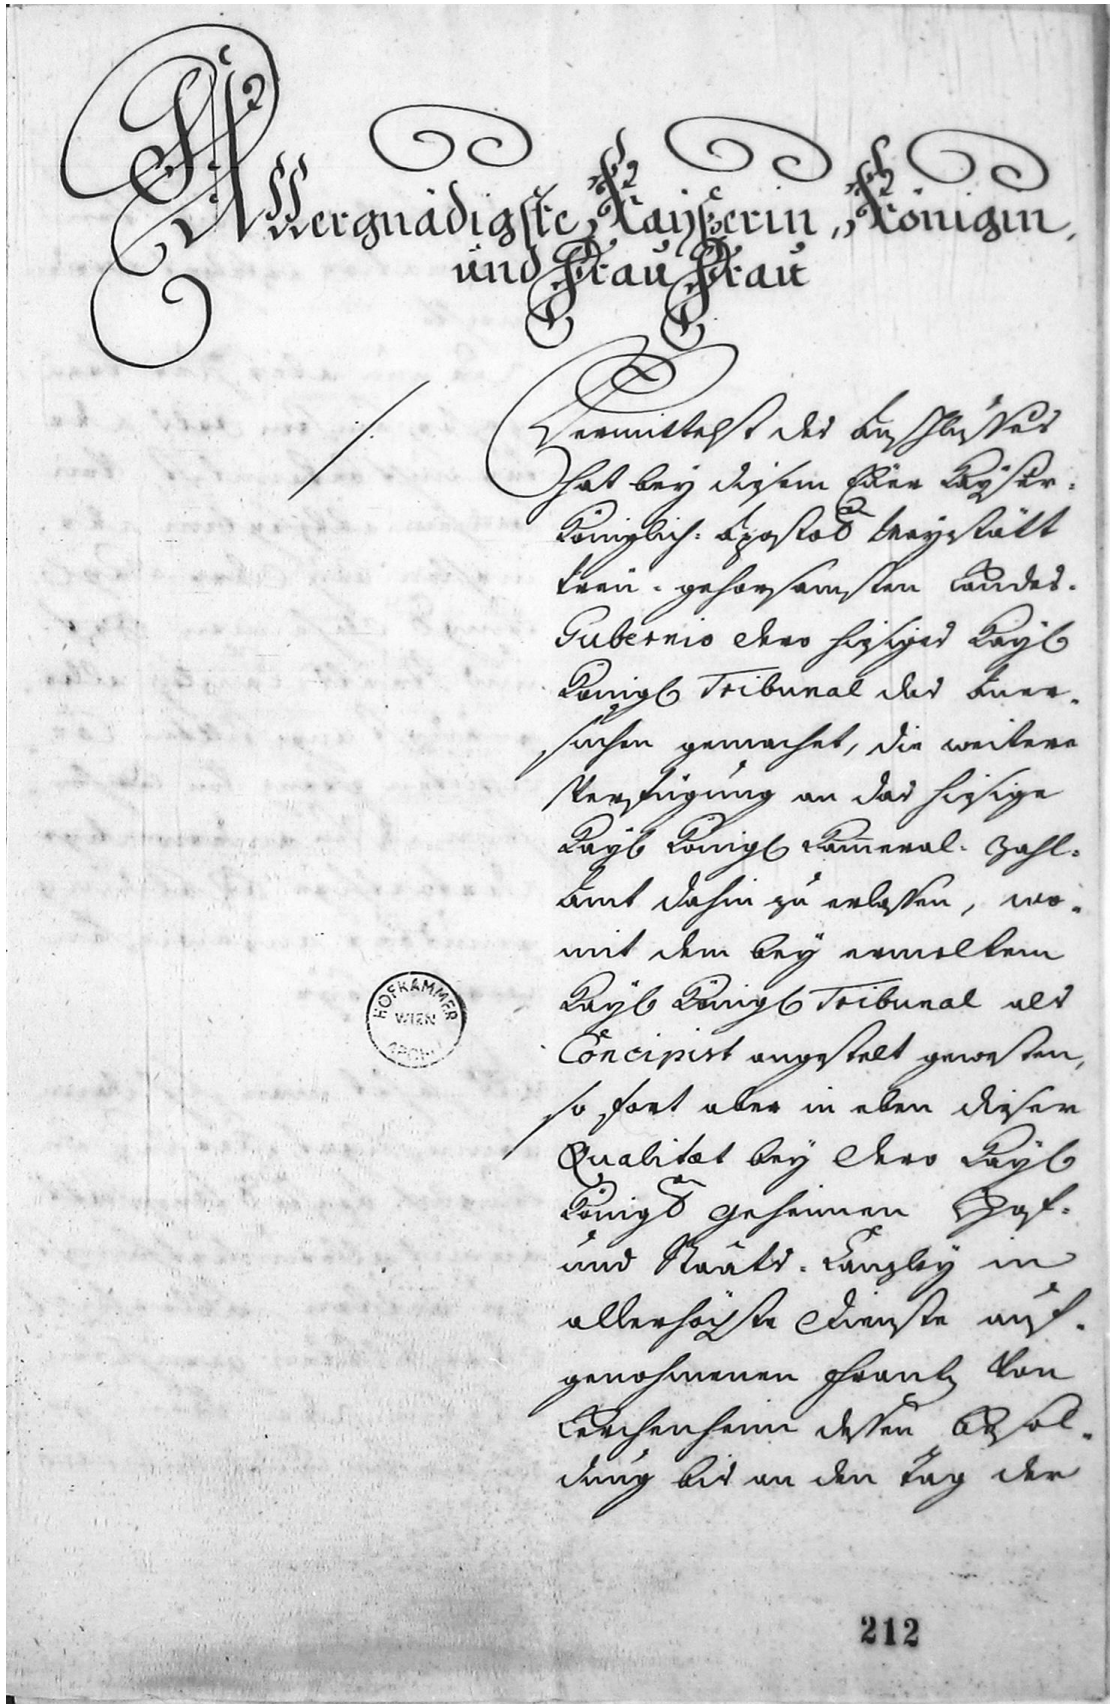 Allergnädigste Kayßerin, Königin,
und Frau Frau
Vermittelst des Anschlusses
hat bey diesem Euer Kayser-
Königlich: Apostol Mayestätt
treü-gehorsamsten Landes-
Gubernio dero hiesiges Kayl
Königl Tribunal das Aner-
suchen gemachet, die weitere
Verfügung an das hiesige
Kayl Königl Kameral-Zahl-
Amt dahin zu erlassen, wo-
mit dem bey ermeltem
Kayl Königl Tribunal als
Concipist angestelt gewesten,
so fort aber in eben dieser
Qualitæt bey dero Kayl
Königl geheimen Hof-
und Staats-Canzley in
allerhöchste Dienste auf-
genohmenen Frantz Von
Lerchenheim dessen Besol-
dung bis an den Tag der
HOFKAMMER
WIEN
ARCHIV
212